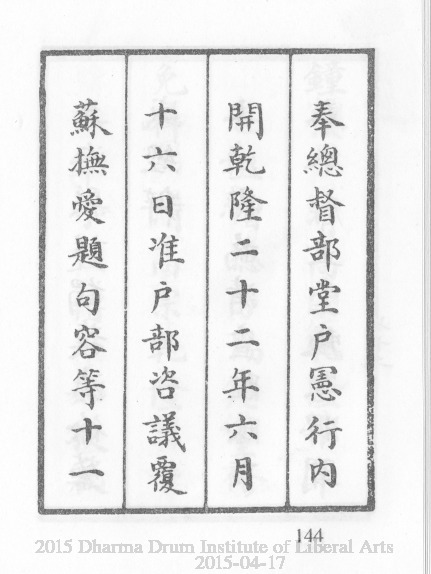 奉總督部堂户憲行内
開乾隆二十二年六月
十六日准户部咨議覆
蘇撫愛題句容等十一
144
2015 Dharma Drum Institute of Liberal Arts
2015-04-17